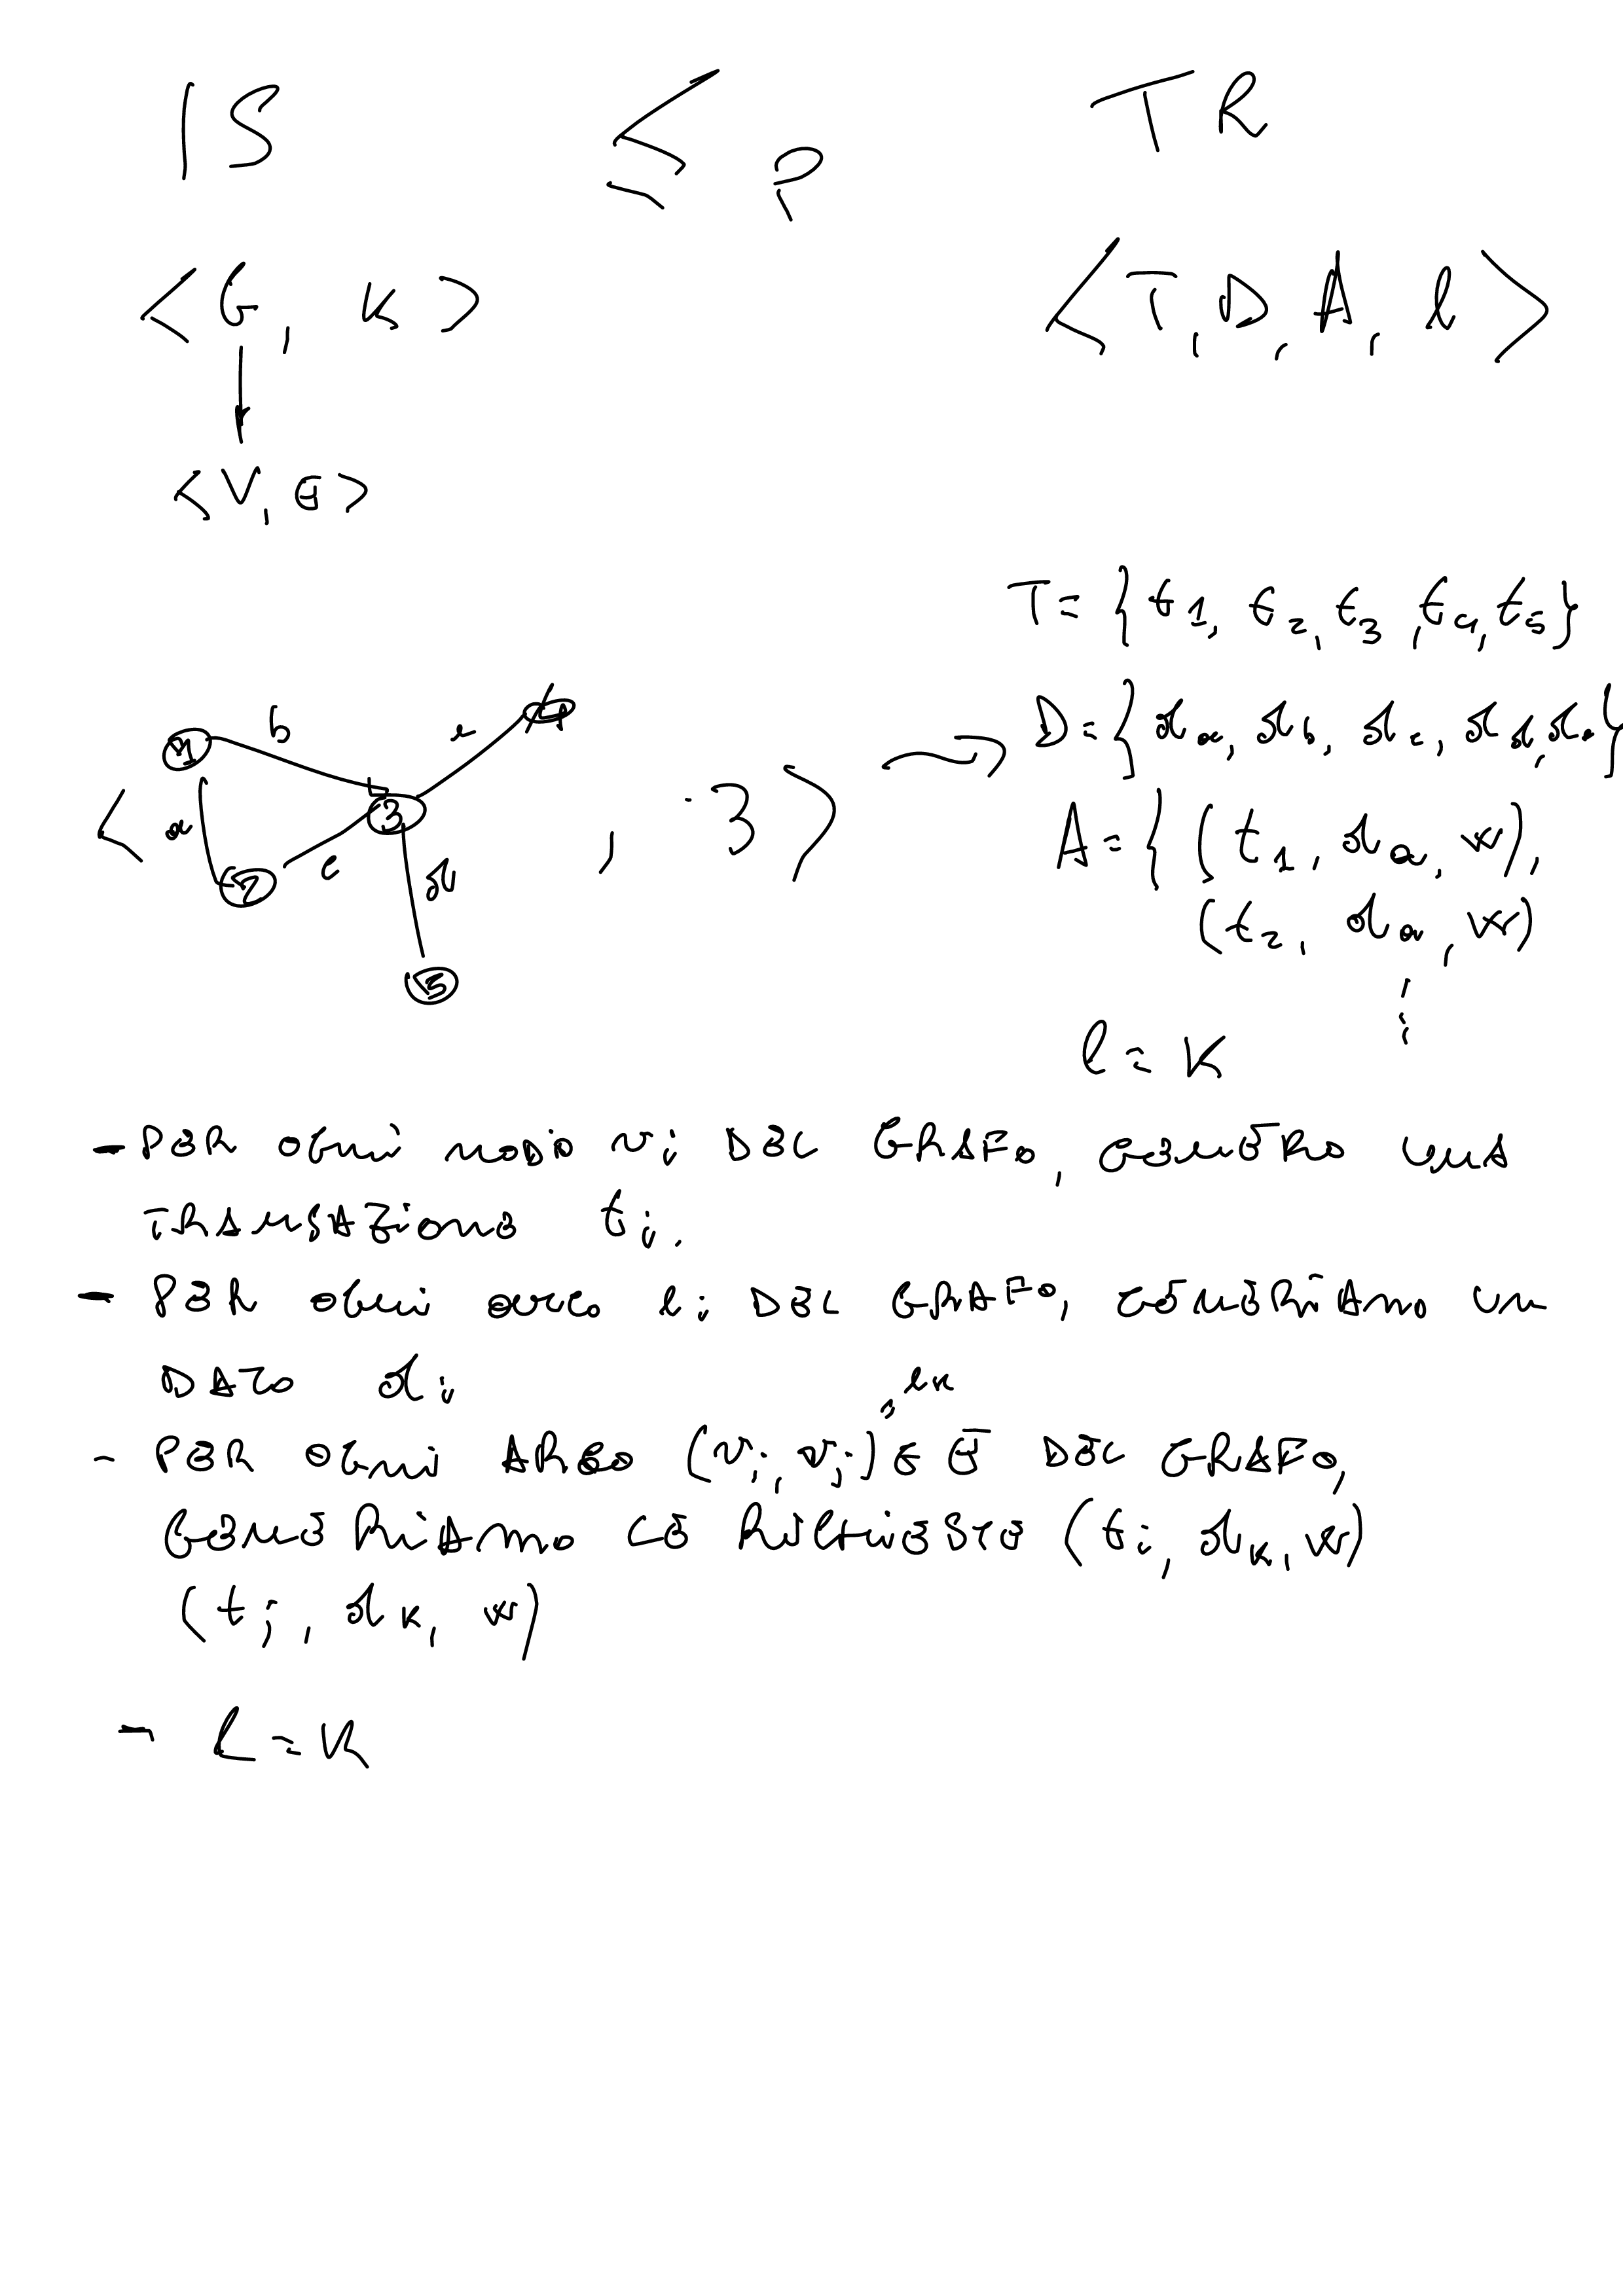 IS ≤ P TR
<G, K> <T, D, A, l>
<V, E>
T = {t1, t2, t3, t4, t5}
D = {da, db, dc, dd, de}
1 b e 4
3
< a , 3> A = {(t1, da, w),
2 c d
(t2, da, w)
5
l = K
- PER OGNI NODO vi DEL GRAFO, GENERO UNA
TRANSAZIONE ti.
- PER OGNI ARCO li DEL GRAFO, GENERIAMO UN
DATO di
- PER OGNI ARCO (vi, vj), lk ∈ E DEL GRAFO,
GENERIAMO LE RICHIESTE (ti, dk, w)
(tj, dk, w)
- l = K